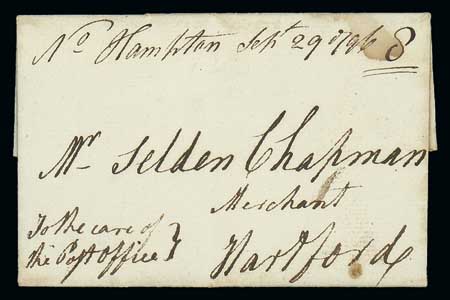 No Hampton Sept 29 1796 8
Mr Selden Chapman
Merchant
To the care of
the Post Office }
Hartford